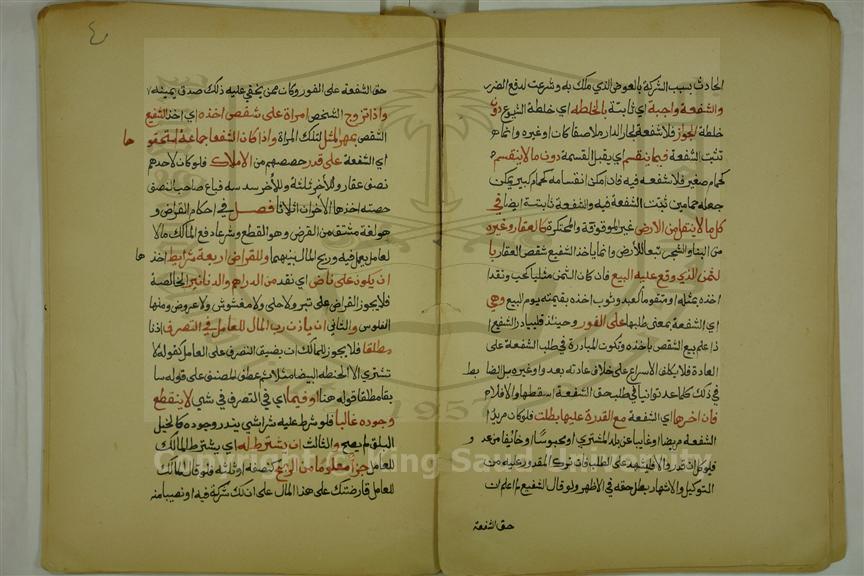 الحادث بسبب الشركة بالعوض الذي ملك به وشرعت لدفع الضرر
والشفعة واجبة اي ثابتة بالخلطه اي خلطة الشيوع دون
خلطة الجواز فلا شفعة لجار الدار ملاصقا كان او غيره وانما
تثبت الشفعة فيما ينقسم اي يقبل القسمة دون مالا ينقسم
كحمام صغير فلا شفعة فيه فان امكن انقسامه كحمام كبير يمكن
جعله حمامين ثبتت الشفعة فيه والشفعة ثابتة ايضا في
كل مالا ينقل من الارض غير الموقوفة والمحتكرة كالعقار وغيره
من البنا والشجر تبعا للأرض وانما ياخذ الشفيع شقص العقار با
لثمن الذي وقع عليه البيع فان كان الثمن مثليا كحب ونقد
اخذه بمثله او متقوما كعبد وثوب اخذه بقيمته يوم البيع وهي
اي الشفعة بمعنى طلبها على الفور وحينئذ فليبادر الشفيع ا
ذا علم بيع الشقص باخذه وتكون المبادرة في طلب الشفعة على
العادة فلا يكلف الاسراع على خلاف عادته بعدو او غيره بل الضا بط
في ذلك كلما عد توانيا في طلب حق الشفعة اسقطها والا فلا م
فان اخرها اي الشفعة مع القدرة عليها بطلت فلو كان مريد ا
الشفعة مريضا او غايبا عن بلد المشتري او محبوسا او خائفا من عد و
فليوكل ان قدر والا فليشهد على الطلب فان ترك المقدور عليه من
التوكيل والاشهاد بطل حقه في الاظهر ولو قال الشفيع لم اعلم ان
حق الشفعة
٤
حق الشفعة على الفور وكان ممن يخفي عليه ذلك صدق بيمينه
واذا تزوج الشخص امراة على شقص اخذه اي اخذ الشفيع
الشقص بمهر المثل لتلك المراة واذا كان الشفعا جماعة استحقو ها
اي الشفعة على قدر حصصهم من الاملاك فلو كان لاحدهم
نصف عقار وللآخر ثلثه وللآخر سدسه فباع صاحب النصف
حصته اخذها الاخران اثلاثا فصل في احكام القراض و
هو لغة مشتق من القرض وهو القطع وشرعا دفع المالك مالا
لعامل يعمل فيه وربح المال بينهما وللقراض اربعة شرايط احد ها
ان يكون على ناض اي نقد من الدراهم والدنانير الخالصة
فلا يجوز القراض على تبر ولا حلي ولا مغشوش ولا عروض ومنها
الفلوس والثاني ان ياذن رب المال للعامل في التصرف اذنا
مطلقا فلا يجوز للمالك ان يضيق التصرف على العامل كقوله لا
تشتري الا الحنطه البيضا مثلا ثم عطف المصنف على قوله سا
بقا مطلقا قوله هنا او فيما اي في التصرف في شي لا ينقطع
وجوده غالبا فلو شرط عليه شرا شي يندر وجوده كالخيل
البلق لم يصح والثالث ان يشترط له اي يشترط المالك
للعامل جزا معلوما من الربح كنصفه او ثلثه فلو قال المالك
للعامل قارضتك على هذا المال على ان لك شركة فيه او نصيبا منه
1957
Copyright © King Saud University